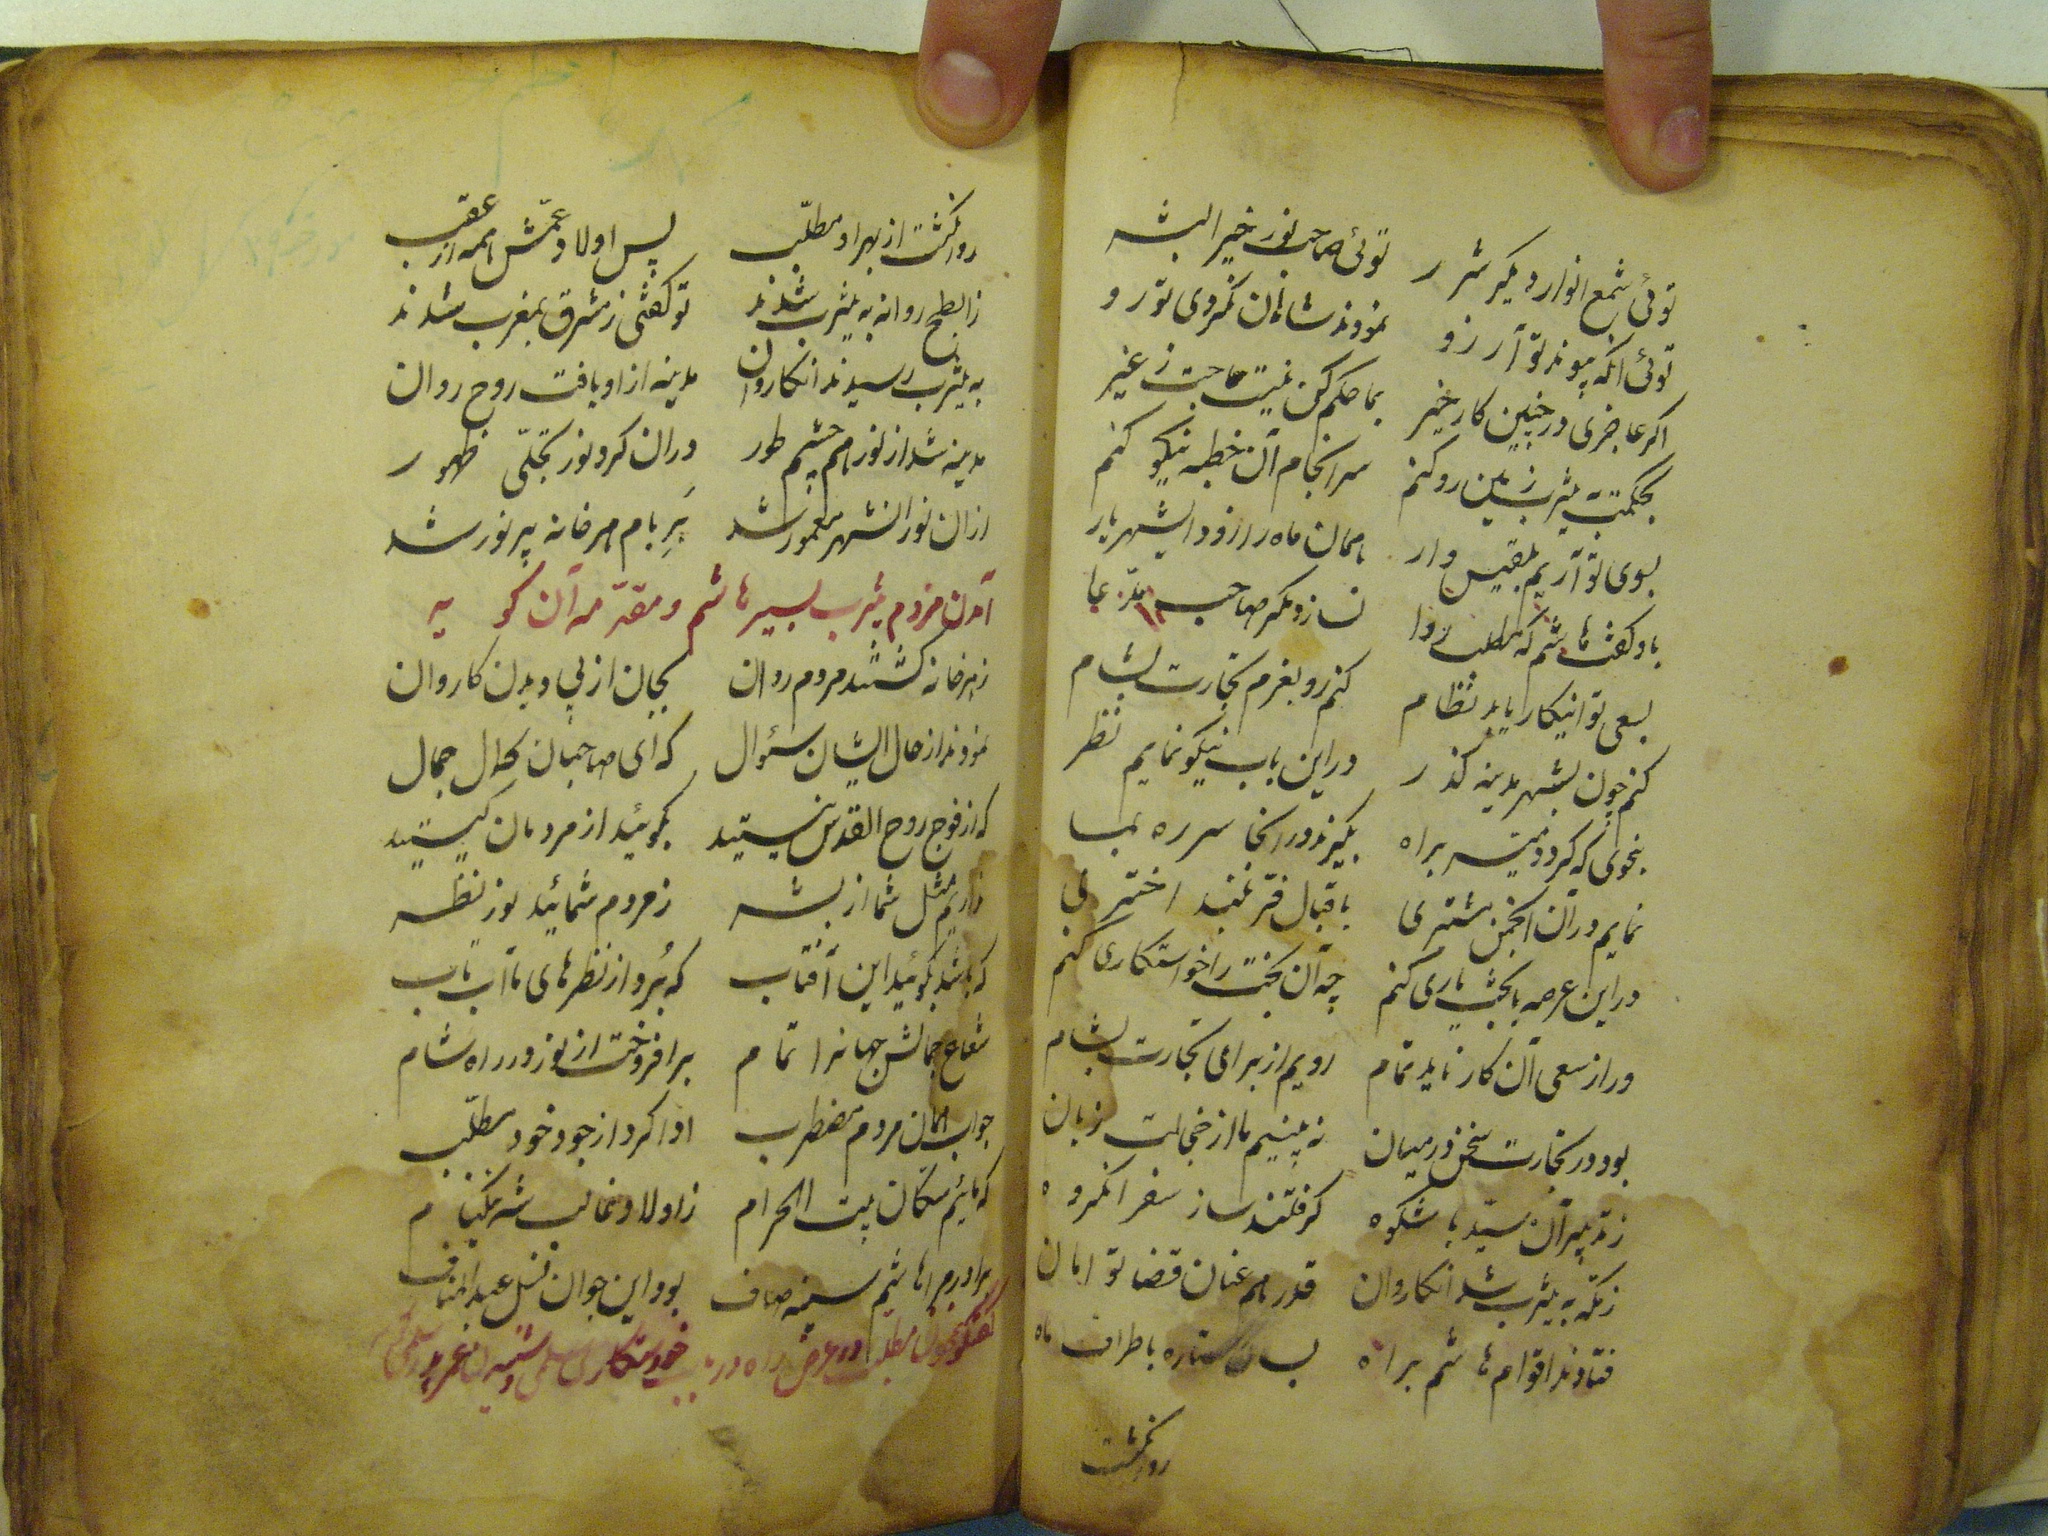 توئی شمع انوار و دیگر شرر توئی صاحب نور خیر البشر
توئی انکه پیوند تو آرزو نمودند شاهان نکردی تو رو
اکر حاضری در چنین کار خیر بما حکم کن نیست حاجت ز غیر
بحکمت به یثرب زمین رو کنم سرانجام آن خطبه نیکو کنم
بسوی تو آریم بلقیس وار همان ماه را زود ای شهریار
باو کفت هاشم که مطلب روا نسازد مکر صاحب مدعا
بسعی تو اینکار یابد نظام کنم رو بعزم تجارت بشام
کنم چون بشهر مدینه کذر در این باب نیکو نمایم نظر
بنحوی که کردد میسر براه بکیرند در انجا سر ره بما
نمایم در آن انجمن مشتری باقبال فرخنده اختری
در این عرصه با بخت یاری کنم چه آن بخت را خواستکاری کنم
ور از سعی آن کار ناید تمام رویم از برای تجارت بشام
بود در تجارت سخن در میان نه بینیم ما از خجالت زیان
ز تدبیر آن سید با شکوه کرفتند ساز سفر انکروه
ز مکه به یثرب شد انکاروان قدر هم عنان قضا توامان
فتادند اقوام هاشم براه بسان ستاره باطراف ماه
روانکشت
روانکشت از بهر او مطلب پس اولاد عمش همه از عقب
ز ابطح روانه به یثرب شدند تو کفتی ز مشرق بمغرب شدند
به یثرب رسیدند انکاروان مدینه از او یافت روح روان
مدینه شد از نور هم چشم طور در ان کرد نور تجلی ظهور
از ان نور انشهر معمور شد بر بام هر خانه پر نور شد
آمدن مردم یثرب بسیر هاشم و مقدمه آن کوید
ز هر خانه کشتند مردم روان بجان از پی دیدن کاروان
نمودند از حال ایشان سئوال که ای صاحبان کمال جمال
که از فوج روح القدس نیستید بکوئید از مردمان کیستید
نداریم مثل شما از بشر ز مردم شمائید نور نظر
که باشد بکوئید این آفتاب که برد از نظرهای ما آب تاب
شعاع جمالش جهانرا تمام برافروخت از نور در راه شام
جواب همان مردم مضطرب ادا کرد از جود خود مطلب
که مائیم سکان بیت الحرام ز اولاد غالب شه نیکنام
برادرم هاشم سینه صاف بود این جوان نسل عبد المناف
گفتگو نمودن مطلب در عرض راه در خواستکاری سلمی و شنیدن عمر پدر سلمی